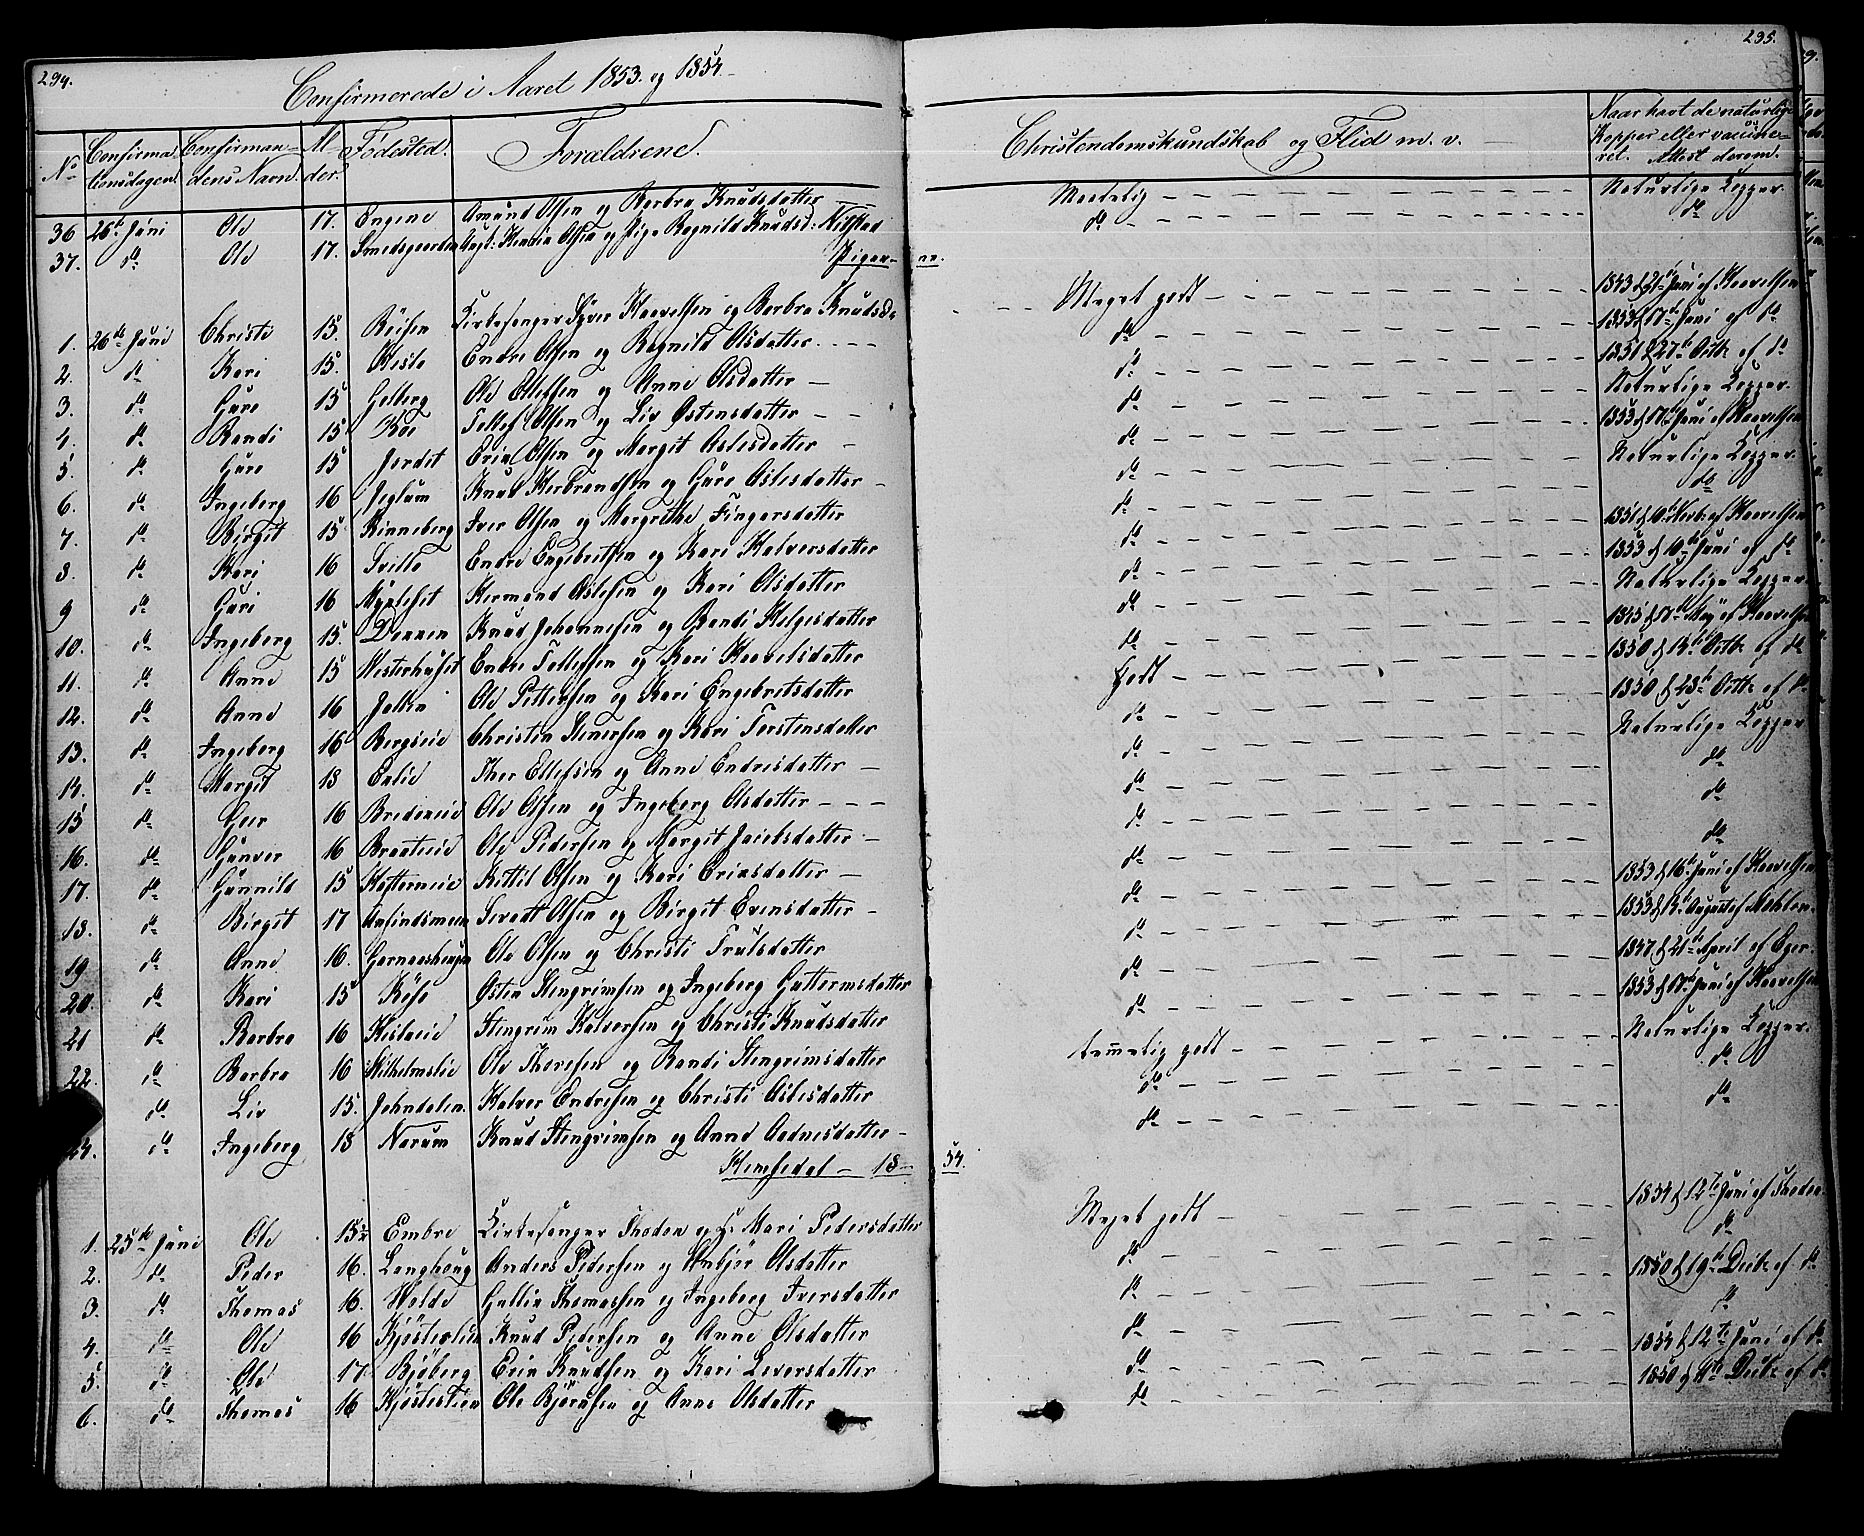 294.
Confirmerede i Aaret 1853. og 1854
No Confirmationsdagen. Confirmandens Navn. Alder. Fødested. Forældrene.
36 26de Juni Ole 17. Engene Amund Olsen og Barbra Knudsdatter
37. do Ole 17. Ole Olsen og Pige Ragnild Knudsd:
Piger
1. 26de Juni Christi 15. Kirkesanger Syver Haavelsen og Barbra Knudsd.
2. do Kari 15. Endre Olsen og Ragnild Olsdatter
3. do Guro 15 Golberg Ole Ellefsen og Anne Olsdatter
4. do Randi 15 Roe Tollef Olsen og Liv Østensdatter
5. do Guro 15 Jordet Erik Olsen og Margit Aslesdatter
6. do Ingeberg 16 Jeglum Knud Herbrandsen og Guro Aslesdatter
7. do Birgit 15 Rinneberg Iver Olsen og Margrethe Fingarsdatter
8. do Kari 16 Endre Engebretsen og Kari Halversdatter
9 do Guri 16 Hermand Aslesen og Kari Olsdatter
10. do Ingeberg 15. Dennen Knud Johannesen og Randi Helgesdatter
11. do Anne 15 Westerhuset Endre Tollefsen og Kari Haavelsdatter
12. do Anne 16 Ole Pettersen og Kari Engebretsdatter
13. do Ingeberg 16 Bergseie Christen Stenersen og Kari Torstensdatter
14. do Margit 18 Iver Ellefsen og Anne Endresdatter
15 do 16 Ole Olsen og Ingeberg Olsdatter
16. do Gunver 16 Braateie Ole Pedersen og Margit Jacobsdatter
17. do Gunnild 15 Kittil Olsen og Kari Eriksdatter
18. do Birgit 17 Olsen og Birgit Evensdatter
19 do Anne 16. Ole Olsen og Christi Trulsdatter
20. do Kari 15 Østen Stengrimsen og Ingeberg Guttormsdatter
21 do Barbra 16 Stengrim Halvorsen og Christi Knudsdatter
22. do Barbra 16 Wilhelmslie Ole Thoresen og Randi Stengrimsdatter
do Liv 15. Halver Endresen og Christi Aslesdatter
24. do Ingeberg 18 Narum Knud Stengrimsen og Anne Aadnesdatter
Hemsedal 18
1. 25de Juni Ole 15½ Embre Kirkesanger Thoden og H. Mari Pedersdatter
2. do Peder 16. Langhoug Anders Pedersen og Anbjør Olsdatter
3. do Thomas 16. Wolde Gullik Thomassen og Ingeberg Iversdatter
4. do Ole 16 Knud Pedersen og Anne Olsdatter
5. do Ole 17 Bjøberg Erik Knudsen og Kari Leversdatter
6. do Thomas 16 Ole Bjørnsen og Anne Olsdatter
295.
Christendomskundskab og Flid m. v.
Naar havt de naturlige Kopper eller vaccineret. Attest derom.
Maadelig Naturlige Kopper
do do
ne.
Meget godt 1843 d 21de Juni af Haavelsen
do 1853 d 17de Juni af do
do 1851 d 27de Octbr af do
do Naturlige Kopper.
do 1853 d 17de Juni af Haavelsen
do Naturlige Kopper.
do do
do af Haavelsen
do 1853 d 10de Juni af do
do Naturlige Kopper.
do 1845 d 17de May af Haavelsen
Godt 1850 d 14de Octbr af do
do 1850 d 23de Octbr af do
do Naturlige Kopper
do do
do do
do do
do 1853 d 16de Juni af Haavelsen
do 1853 d 14de August af
do 1847 d 21de April af
do 1853 d 17de Juni af Haavelsen
temmelig godt Naturlige Kopper.
do do
do do
54.
Meget godt 1854 d 12te Juni af Thoden
do do
do 1850 d 19de Decbr af do
do do
do 1854 d 12te Juni af do
do 1850 d Decbr af do